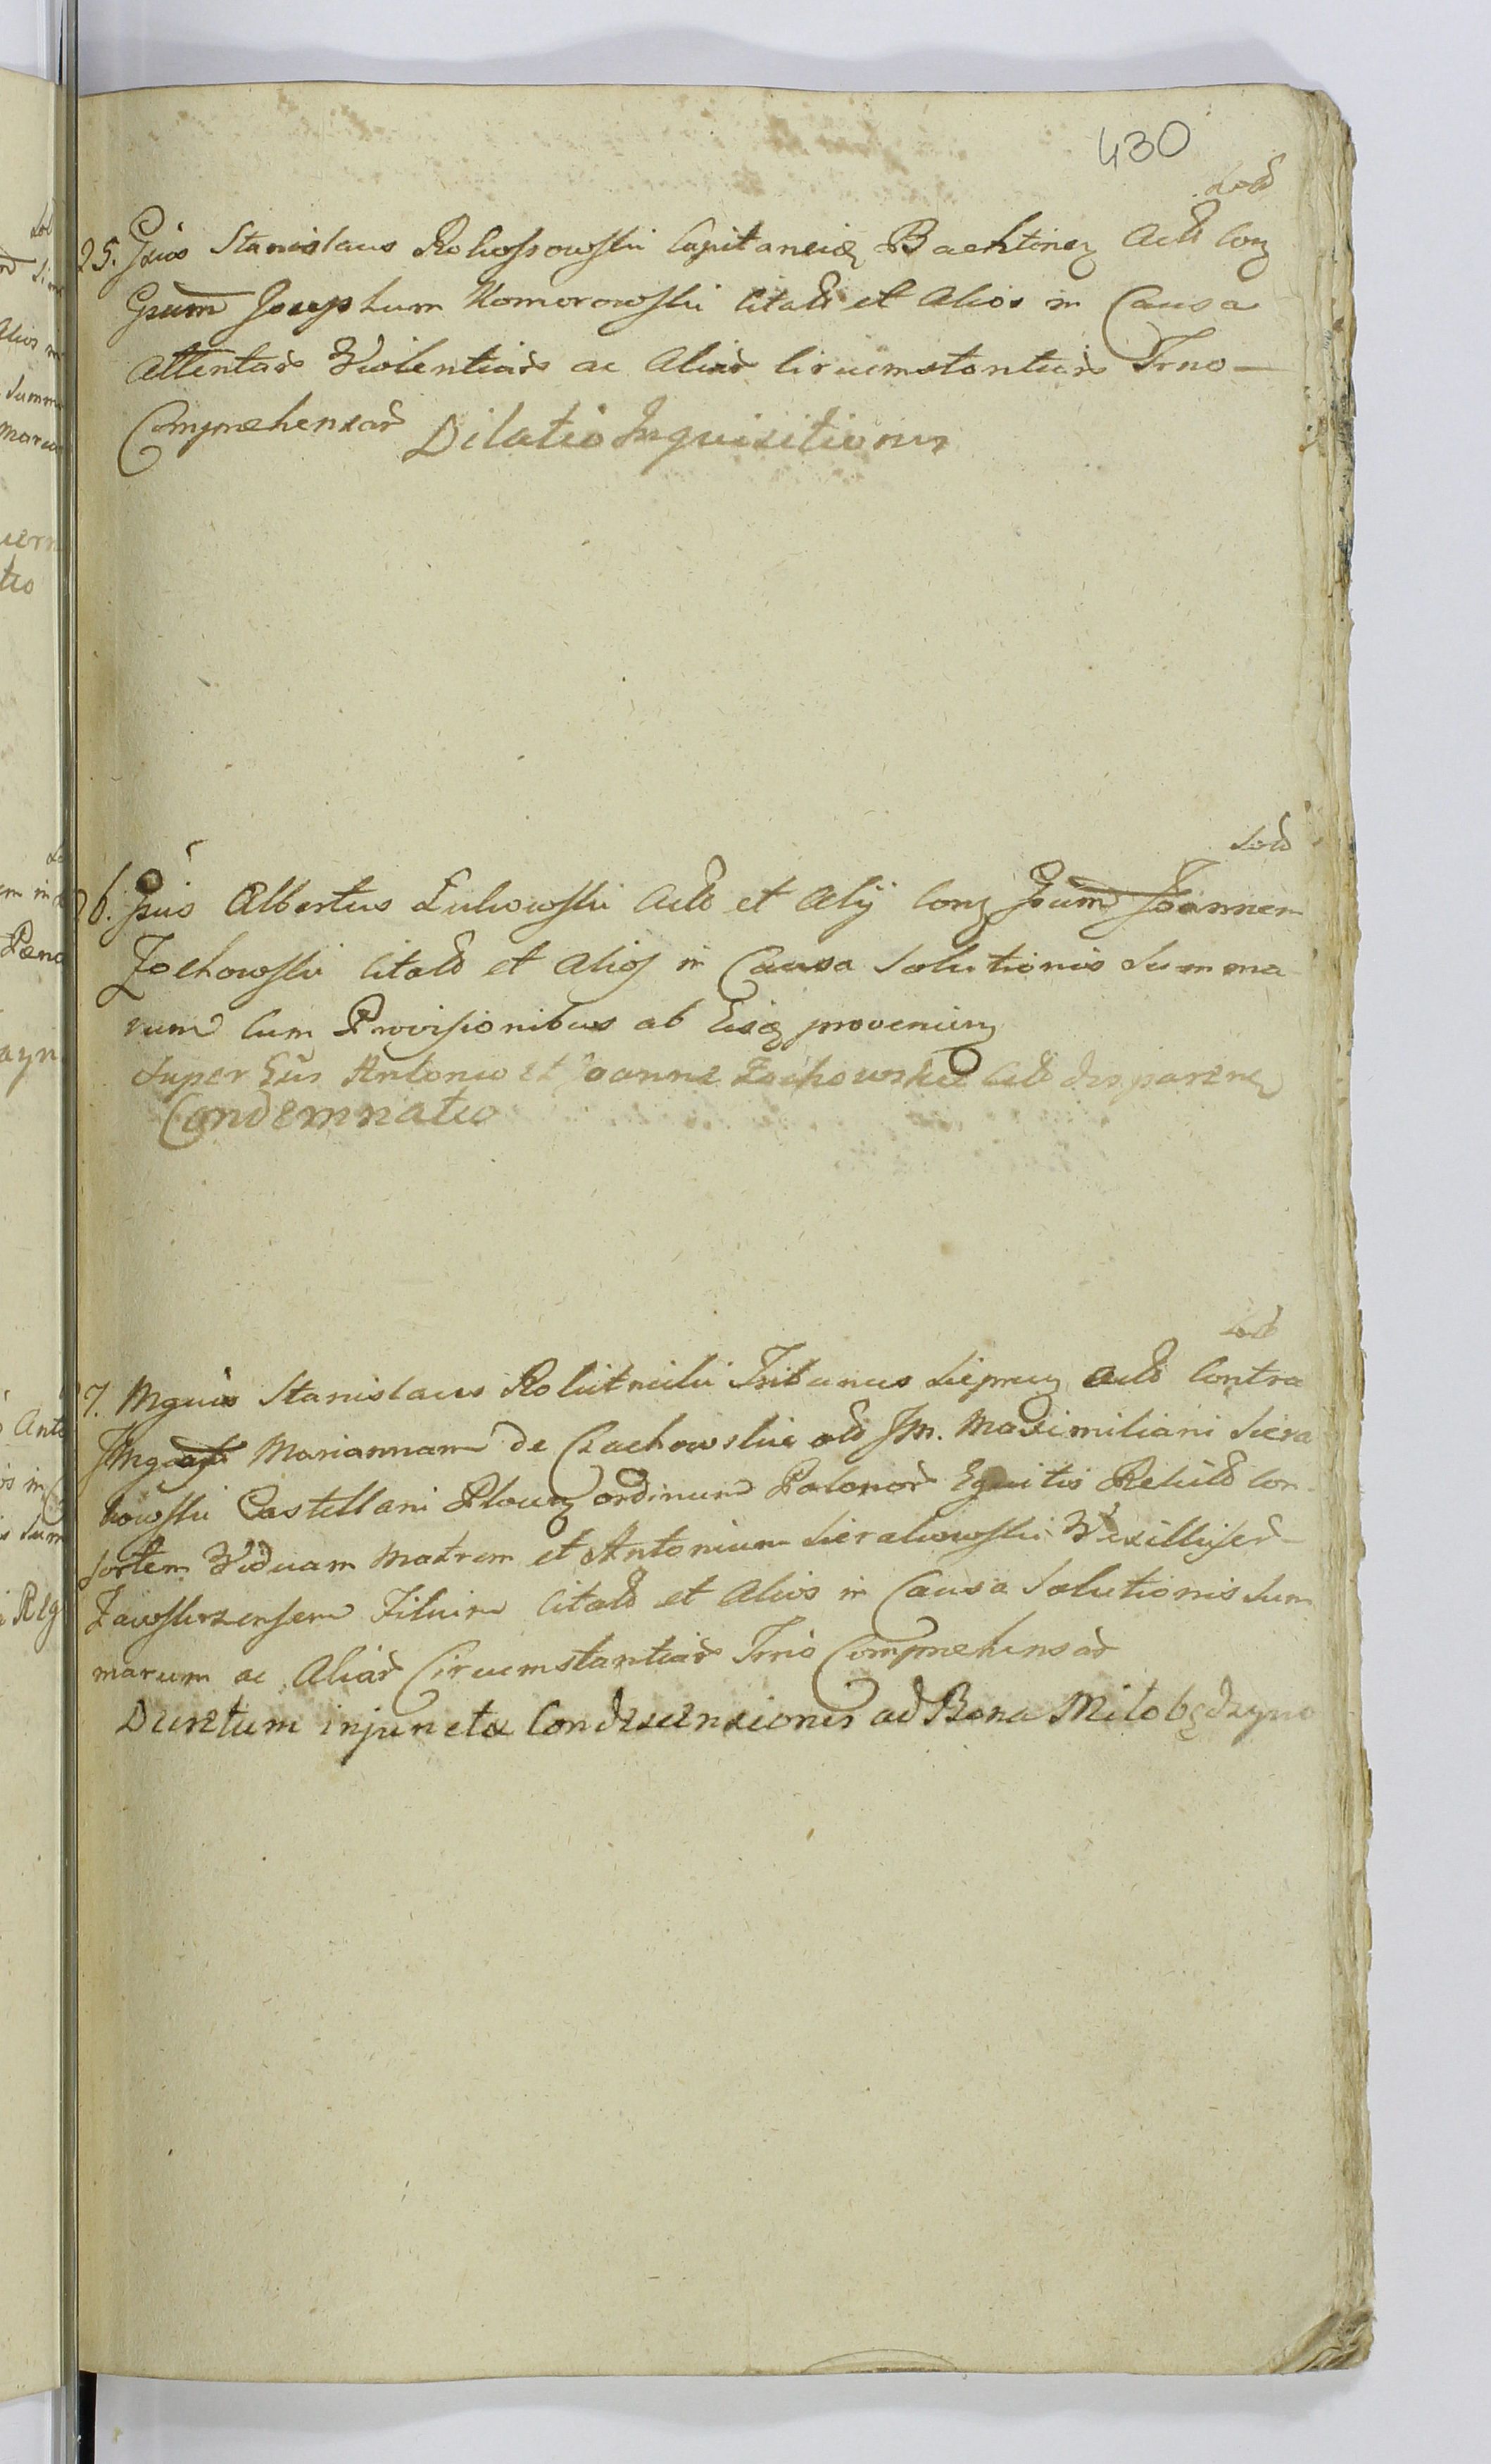 430
Sold
25. Gsus Stanislaus Rokossowski Capitaneid Bachtinen Actd Con
Gsum Josephum Komorowski Citatd et Alios in Causa
Attentar Violentiar ac Aliar Circumstantiar Trno
Comprehensar Dilatio Inquisitionis
Sold
26. Gsus Albertus Łukowski Actd et Alij Con Gsum Joannem
Zochowski Citatd et Alios in Causa Solutionis Summa
rum Cum Provisionibus ab Eisd provenien
Super Gsis Antonio et Joanne Zochowskie Citd disparen
Condemnatio
Sold
7. Mgcus Stanislaus Rościszewski Tribunus Sieprcen Actd Contra
Mariannam de Czachowskie old JM. Maximiliani Siera
kowski Castellani Plocen ordinum Polonor Equitis Relictd Con
sortem Viduam Matrem et Antonium Sierakowski Vexillifer
Zawskrzensem Filium Citatd et Alios in Causa Solutionis Sum
marum ac Aliar Circumstantiar Trno Comprehensar
Decretum injunctae Condescensionis ad Bona Miłobędzyno